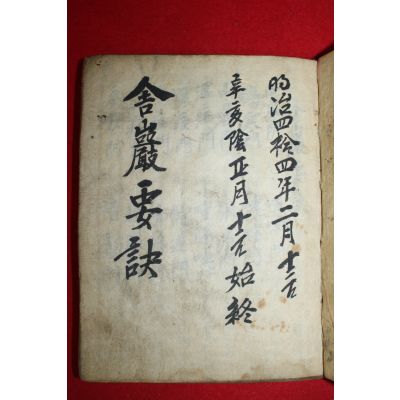 明治四拾四年二月十
辛亥陰正月十始終
舍巖要訣